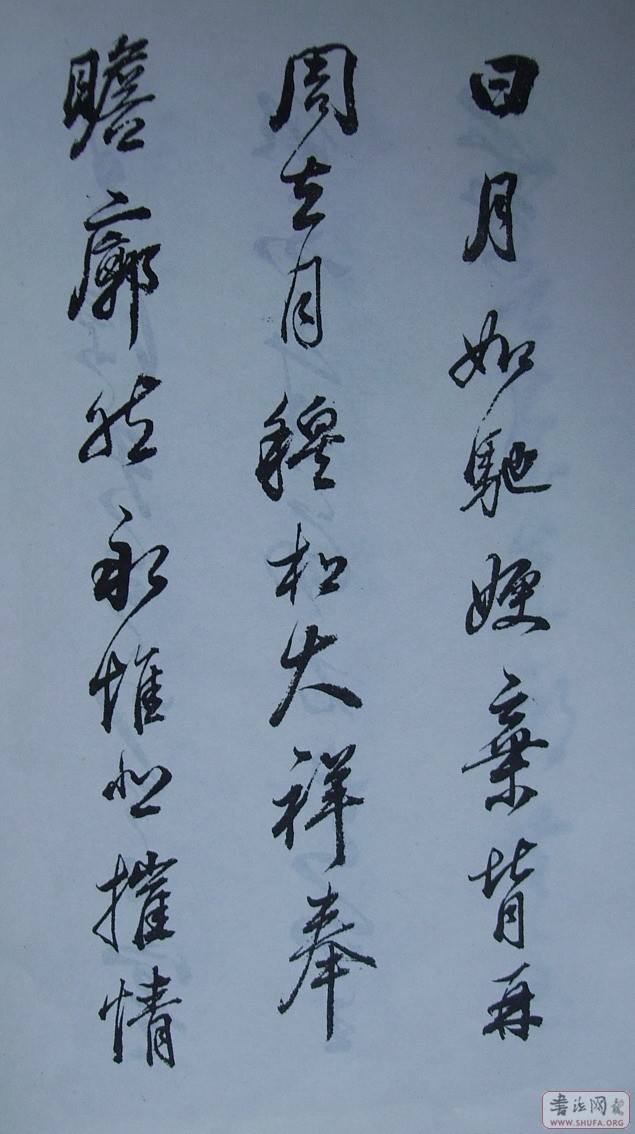 日月如馳嫂棄背再
周去月穆松大祥奉
瞻廓然永惟悲摧情
書法网
WWW.SHUFA.ORG